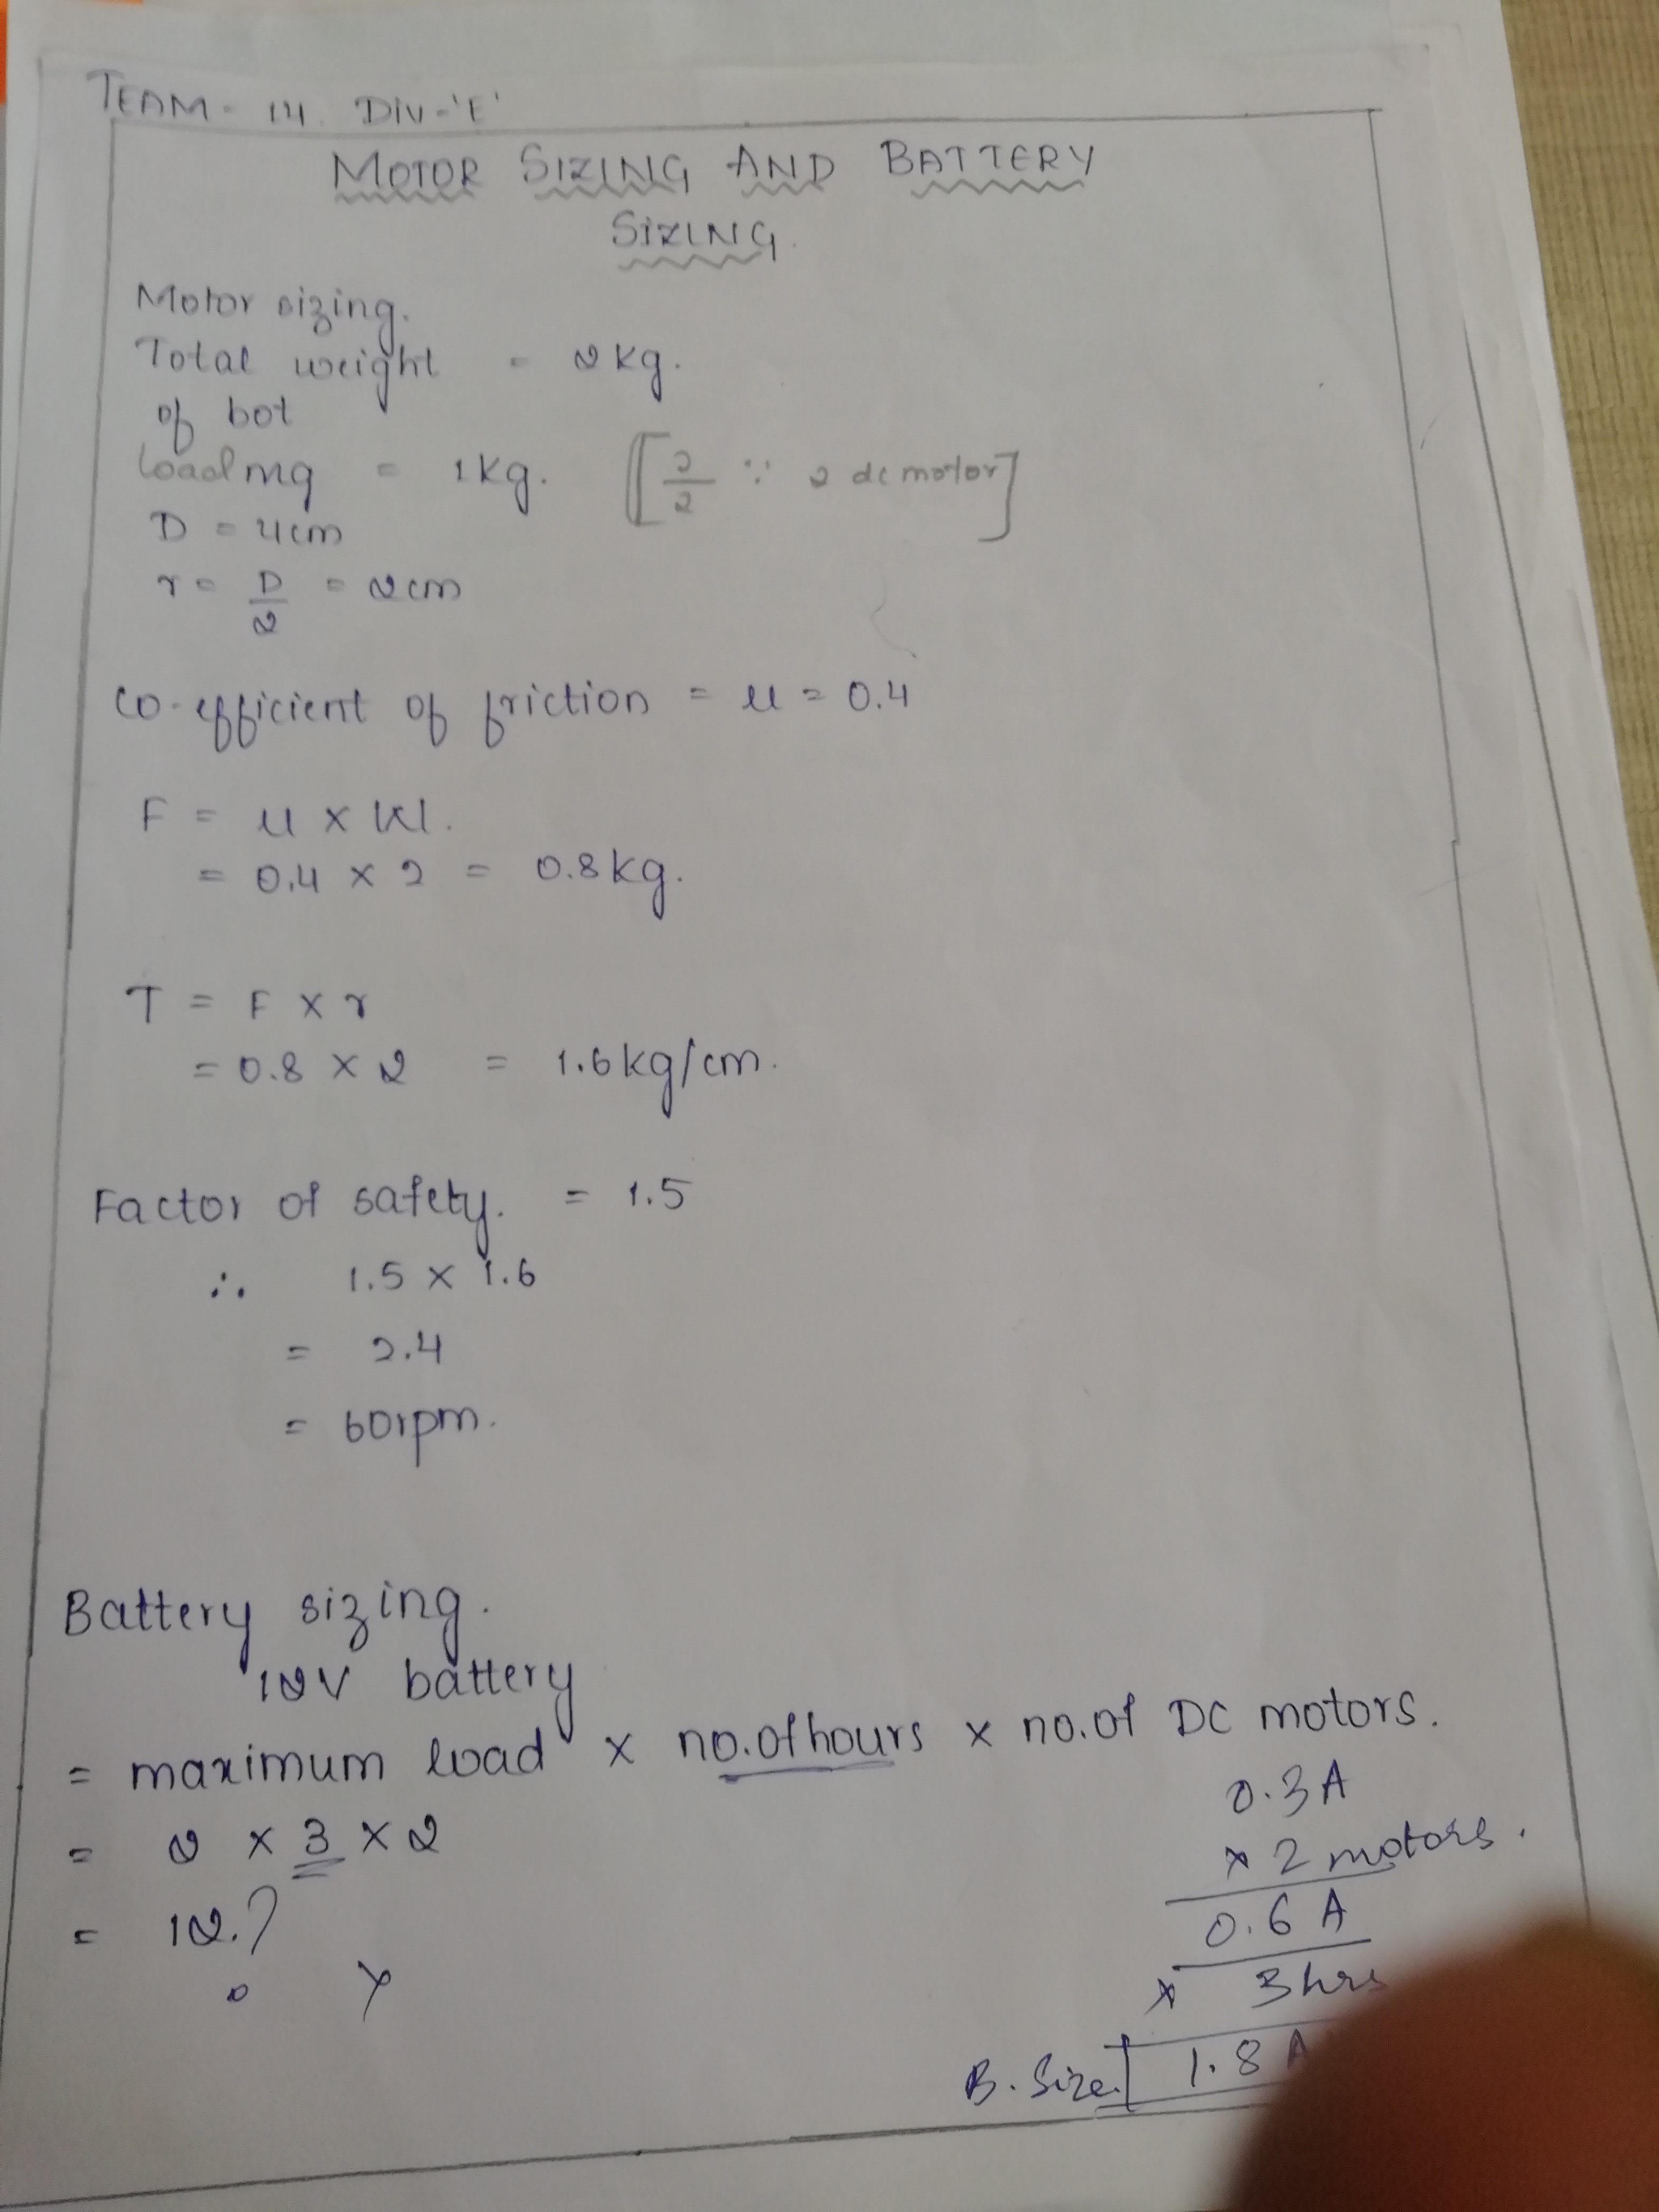 TEAM - 14. DIV-'E'
MOTOR SIZING AND BATTERY
SIZING.
Motor sizing.
Total weight = 2kg.
of bot
load mg = 1kg. [2/2 ∵ 2 dc motor]
D = 4cm
r = D/2 = 2cm
co-efficient of friction = u = 0.4
F = u x W.
= 0.4 x 2 = 0.8kg.
T = F x r
= 0.8 x 2 = 1.6kg/cm.
Factor of safety. = 1.5
∴ 1.5 x 1.6
= 2.4
= 60rpm.
Battery sizing.
12V battery
= maximum load x no.of hours x no.of DC motors.
= 2 x 3 x 2
= 12.?
0.3A
x 2 motors.
0.6 A
x 3hrs
B. Size. 1.8 A